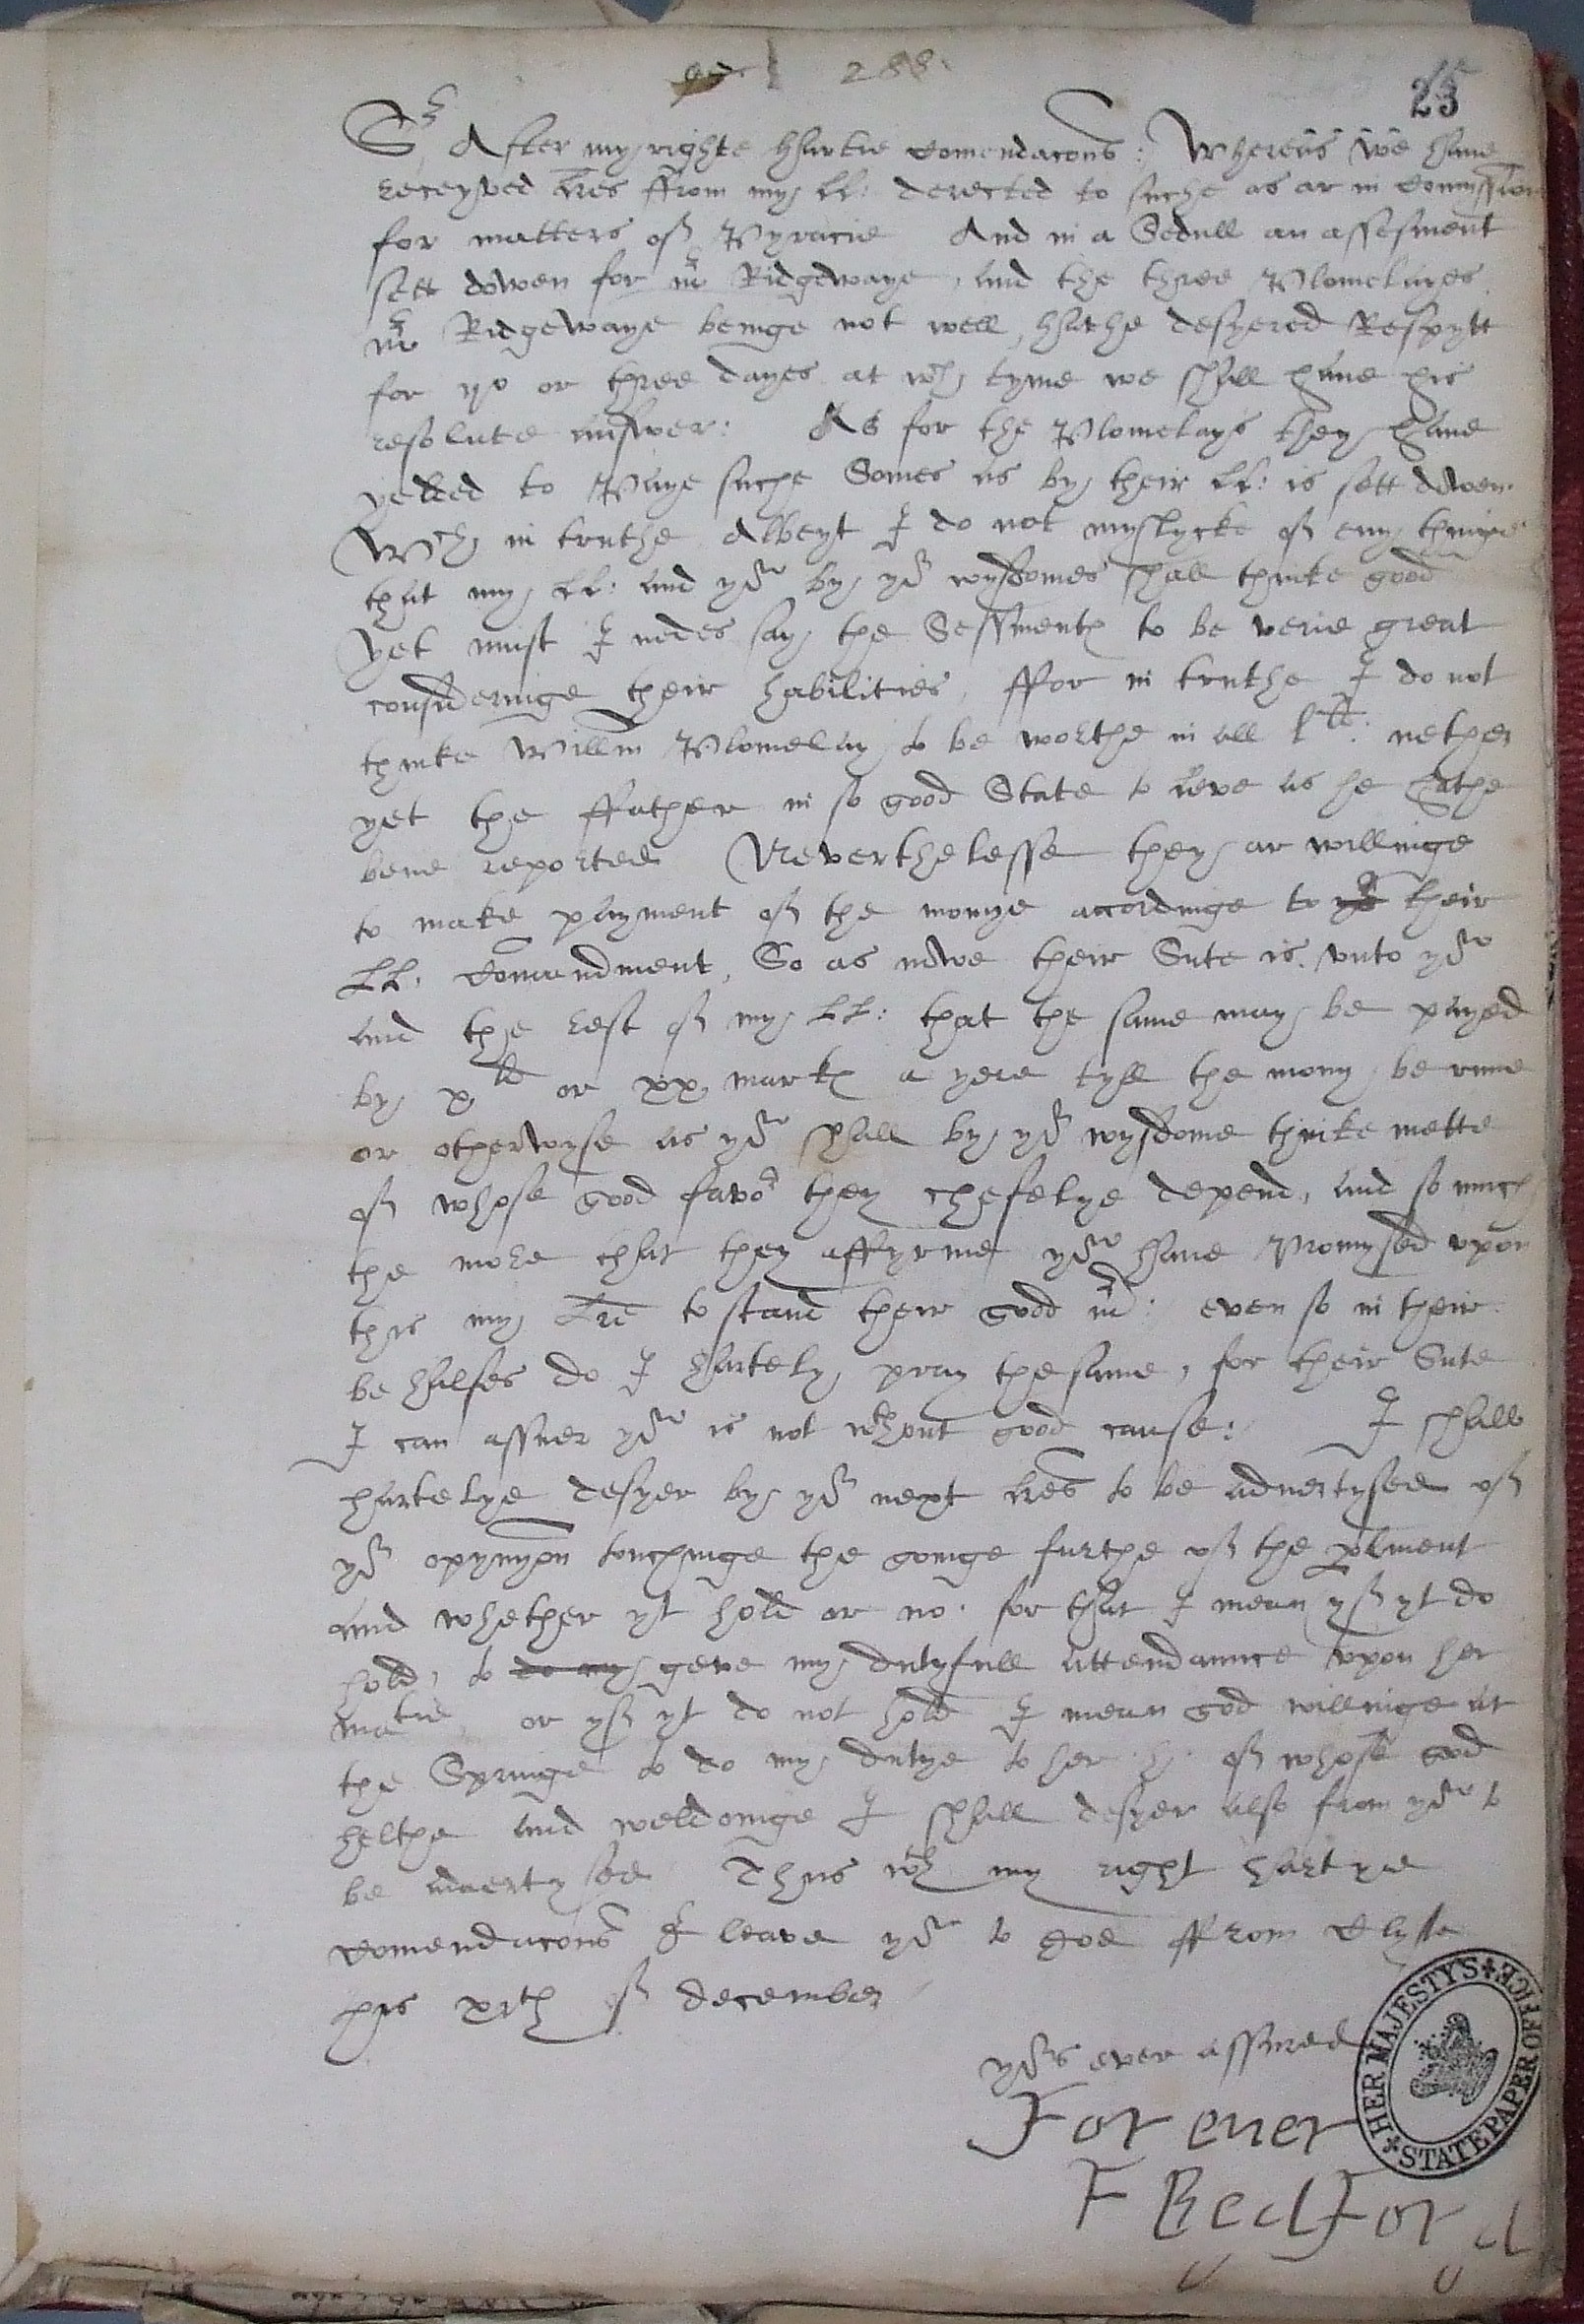 288.
25
Sr After my righte hartie Comendacons: Whereas we have
receyved lres ffrom my ll: derected to suche as ar in Comyssion
for matters of Pyracie And in a Sedull an assesment
sett dowen for mr Ridgwaye, and the three Plomelayes.
mr Ridgewaye beinge not well, hathe desyered Respytt
for ijo or three dayes at wch tyme we shall have his
resolute answer: As for the Plomelays they have
yelded to Paye suche Somes as by their ll: is sett dowen.
Wch in truthe Albeyt I do not myslycke of eny thinge
that my ll: and yow by yor wysdomes shall thinke good
Yet must I nedes say the Sessment to be verie great
consideringe their habilities, ffor in truthe I do not
thinke Willm Plomelay to be worthe in all lli: nether
yet the ffather in so good State to leve as he hathe
bene reported Neverthelesse they ar willinge
to make payment of the monye accordinge to their
LL. Comandment, So as nowe their Sute is unto yow
and the rest of my LL: that the same may be payed
by xli or xx markes a yere tyll the mony be runne
or otherwyse as yow shall by yor wysdome thinke mette
of whose good favor they chefelye depend, and so much
the more that they affyrme yow have Promysed upon
this my lre to stand their good mr: even so in their
behalfes do I hartely pray the same, for their Sute
I can assuer yow is not wthout good cause: I shall
hartelye desyer by yor next lres to be advertysed of
yor opynyon touchinge the goinge furthe of the plment
and whether yt hold or no. for that I mean yf yt do
hold, to do my geve my dutyfull attendaunce upon her
matie, or yf yt do not hold I mean god willinge at
the Springe to do my dutye to her h. of whose good
helthe and weldoinge I shall desyer also from yow to
be advertysed Thus wth my right hartye
Comendacons I leave yow to god ffrom
this xith of December
yors ever assured
For ever
F Bedford
HER MAJESTY'S STATE PAPER OFFICE